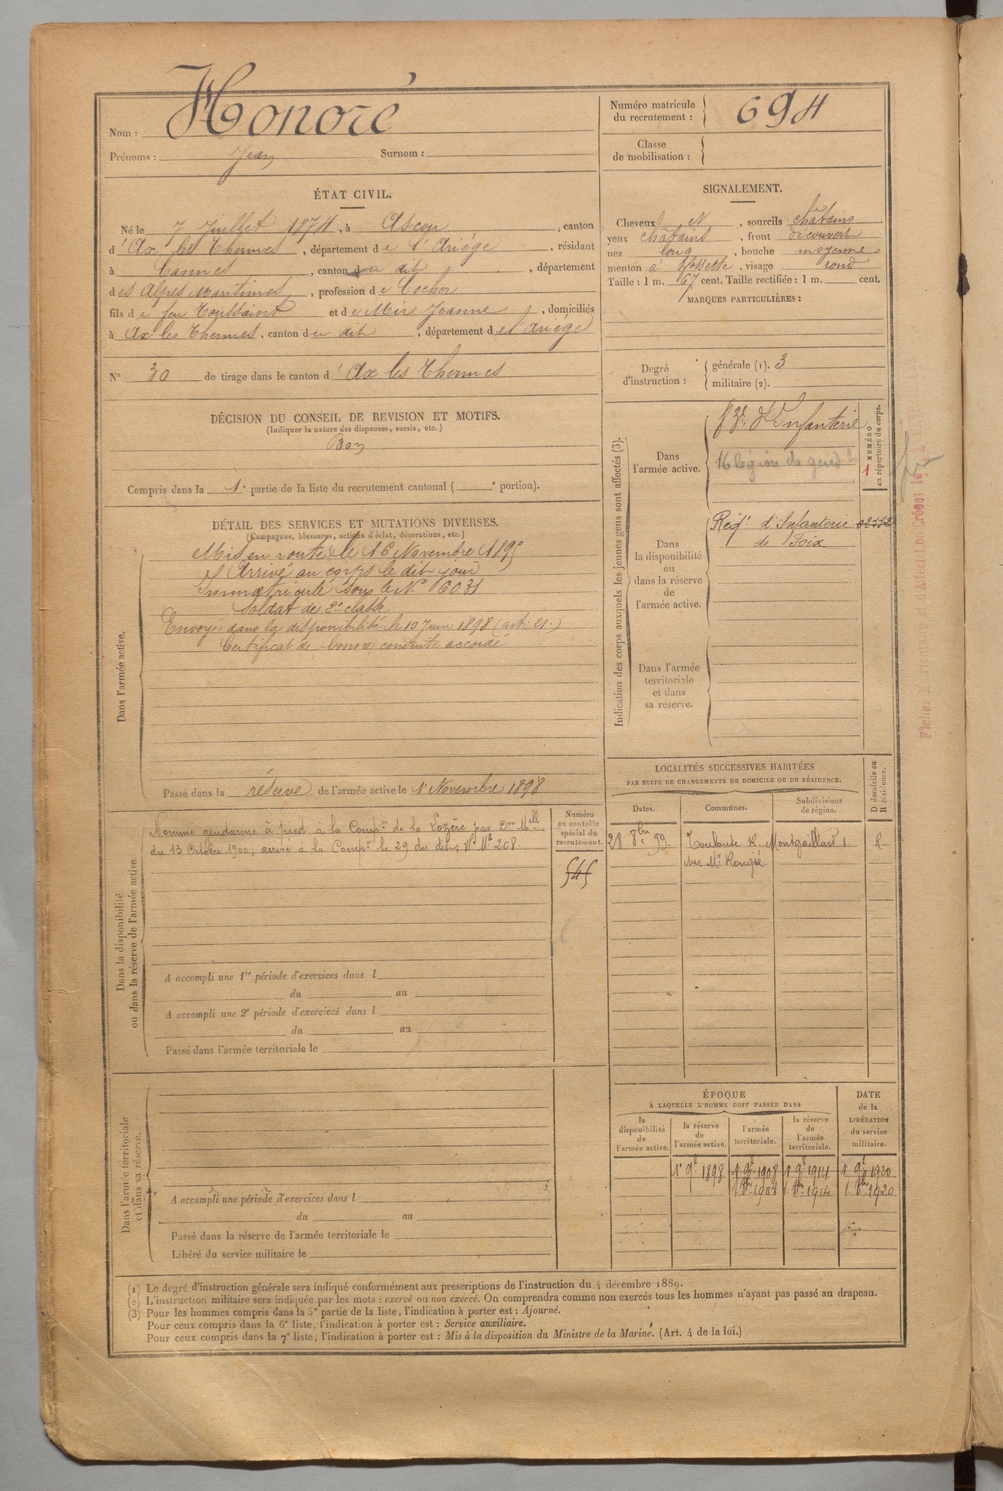 Nom : Honoré
Prénoms : Jean Surnom :
Numéro matricule du recrutement : 694
Classe de mobilisation :
ÉTAT CIVIL.
Né le 7 Juillet 1874, à Ascou, canton
d'Ax les Thermes, département de l'Ariège, résidant
à Cannes, canton du dit, département
des Alpes Maritimes, profession de Cocher
fils de feu Toussaint et de Mir Jeanne, domiciliés
à Ax les Thermes, canton du dit, département de l'Ariège
N° 30 de tirage dans le canton d'Ax les Thermes
SIGNALEMENT.
Cheveux et, sourcils châtains
yeux châtains, front découvert
nez long, bouche moyenne
menton à fossette, visage rond
Taille : 1 m. 67 cent. Taille rectifiée : 1 m. cent.
MARQUES PARTICULIÈRES :
Degré d'instruction : générale (1). 3
militaire (2).
DÉCISION DU CONSEIL DE REVISION ET MOTIFS.
(Indiquer la nature des dispenses, sursis, etc.)
Bon
Compris dans la 1e partie de la liste du recrutement cantonal ( e portion).
DÉTAIL DES SERVICES ET MUTATIONS DIVERSES.
(Campagnes, blessures, actions d'éclat, décorations, etc.)
Dans l'armée active.
Mis en route le 16 Novembre 1895
Arrivé au corps le dit jour
Immatriculé sous le N° 6031
Soldat de 2e classe
Envoyé dans la disponibilité le 10 Juin 1898 (art. 21.)
Certificat de bonne conduite accordé
Passé dans la réserve de l'armée active le 1er Novembre 1898
Indication des corps auxquels les jeunes gens sont affectés (3).
NUMÉRO au répertoire du corps.
Dans l'armée active.
d'Infanterie
16 légion de gend
Dans la disponibilité ou dans la réserve de l'armée active.
Régt d'Infanterie
de Foix
Dans l'armée territoriale et dans sa réserve.
Dans la disponibilité ou dans la réserve de l'armée active.
Nommé gendarme à pied à la Compie de la Lozère par Don Melle
du 13 Octobre 1900, arrivé à la Compie le 29 du dit, Nº Mle 208
Numéro au contrôle spécial du recrutement.
545
A accompli une 1re période d'exercices dans l
du au
A accompli une 2e période d'exercices dans l
du au
Passé dans l'armée territoriale le
LOCALITÉS SUCCESSIVES HABITÉES
PAR SUITE DE CHANGEMENTS DE DOMICILE OU DE RÉSIDENCE.
Dates. Communes. Subdivisions de région. D domicile ou R résidence.
21 8bre 99. Toulouse R. Montgaillard 1 R.
chez Mr Rougié
Dans l'armée territoriale et dans sa réserve.
A accompli une période d'exercices dans l
du au
Passé dans la réserve de l'armée territoriale le
Libéré du service militaire le
ÉPOQUE
À LAQUELLE L'HOMME DOIT PASSER DANS
la disponibilité de l'armée active. la réserve de l'armée active. l'armée territoriale. la réserve de l'armée territoriale.
DATE de la LIBÉRATION du service militaire.
1er 9e 1898 1 9e 1908 1 9e 1914 1 9e 1920
1 8bre 1908 1 8bre 1914 1 8bre 1920
(1) Le degré d'instruction générale sera indiqué conformément aux prescriptions de l'instruction du 4 décembre 1889.
(2) L'instruction militaire sera indiquée par les mots : exercé ou non exercé. On comprendra comme non exercés tous les hommes n'ayant pas passé au drapeau.
(3) Pour les hommes compris dans la 5e partie de la liste, l'indication à porter est : Ajourné.
Pour ceux compris dans la 6e liste, l'indication à porter est : Service auxiliaire.
Pour ceux compris dans la 7e liste, l'indication à porter est : Mis à la disposition du Ministre de la Marine. (Art. 4 de la loi.)